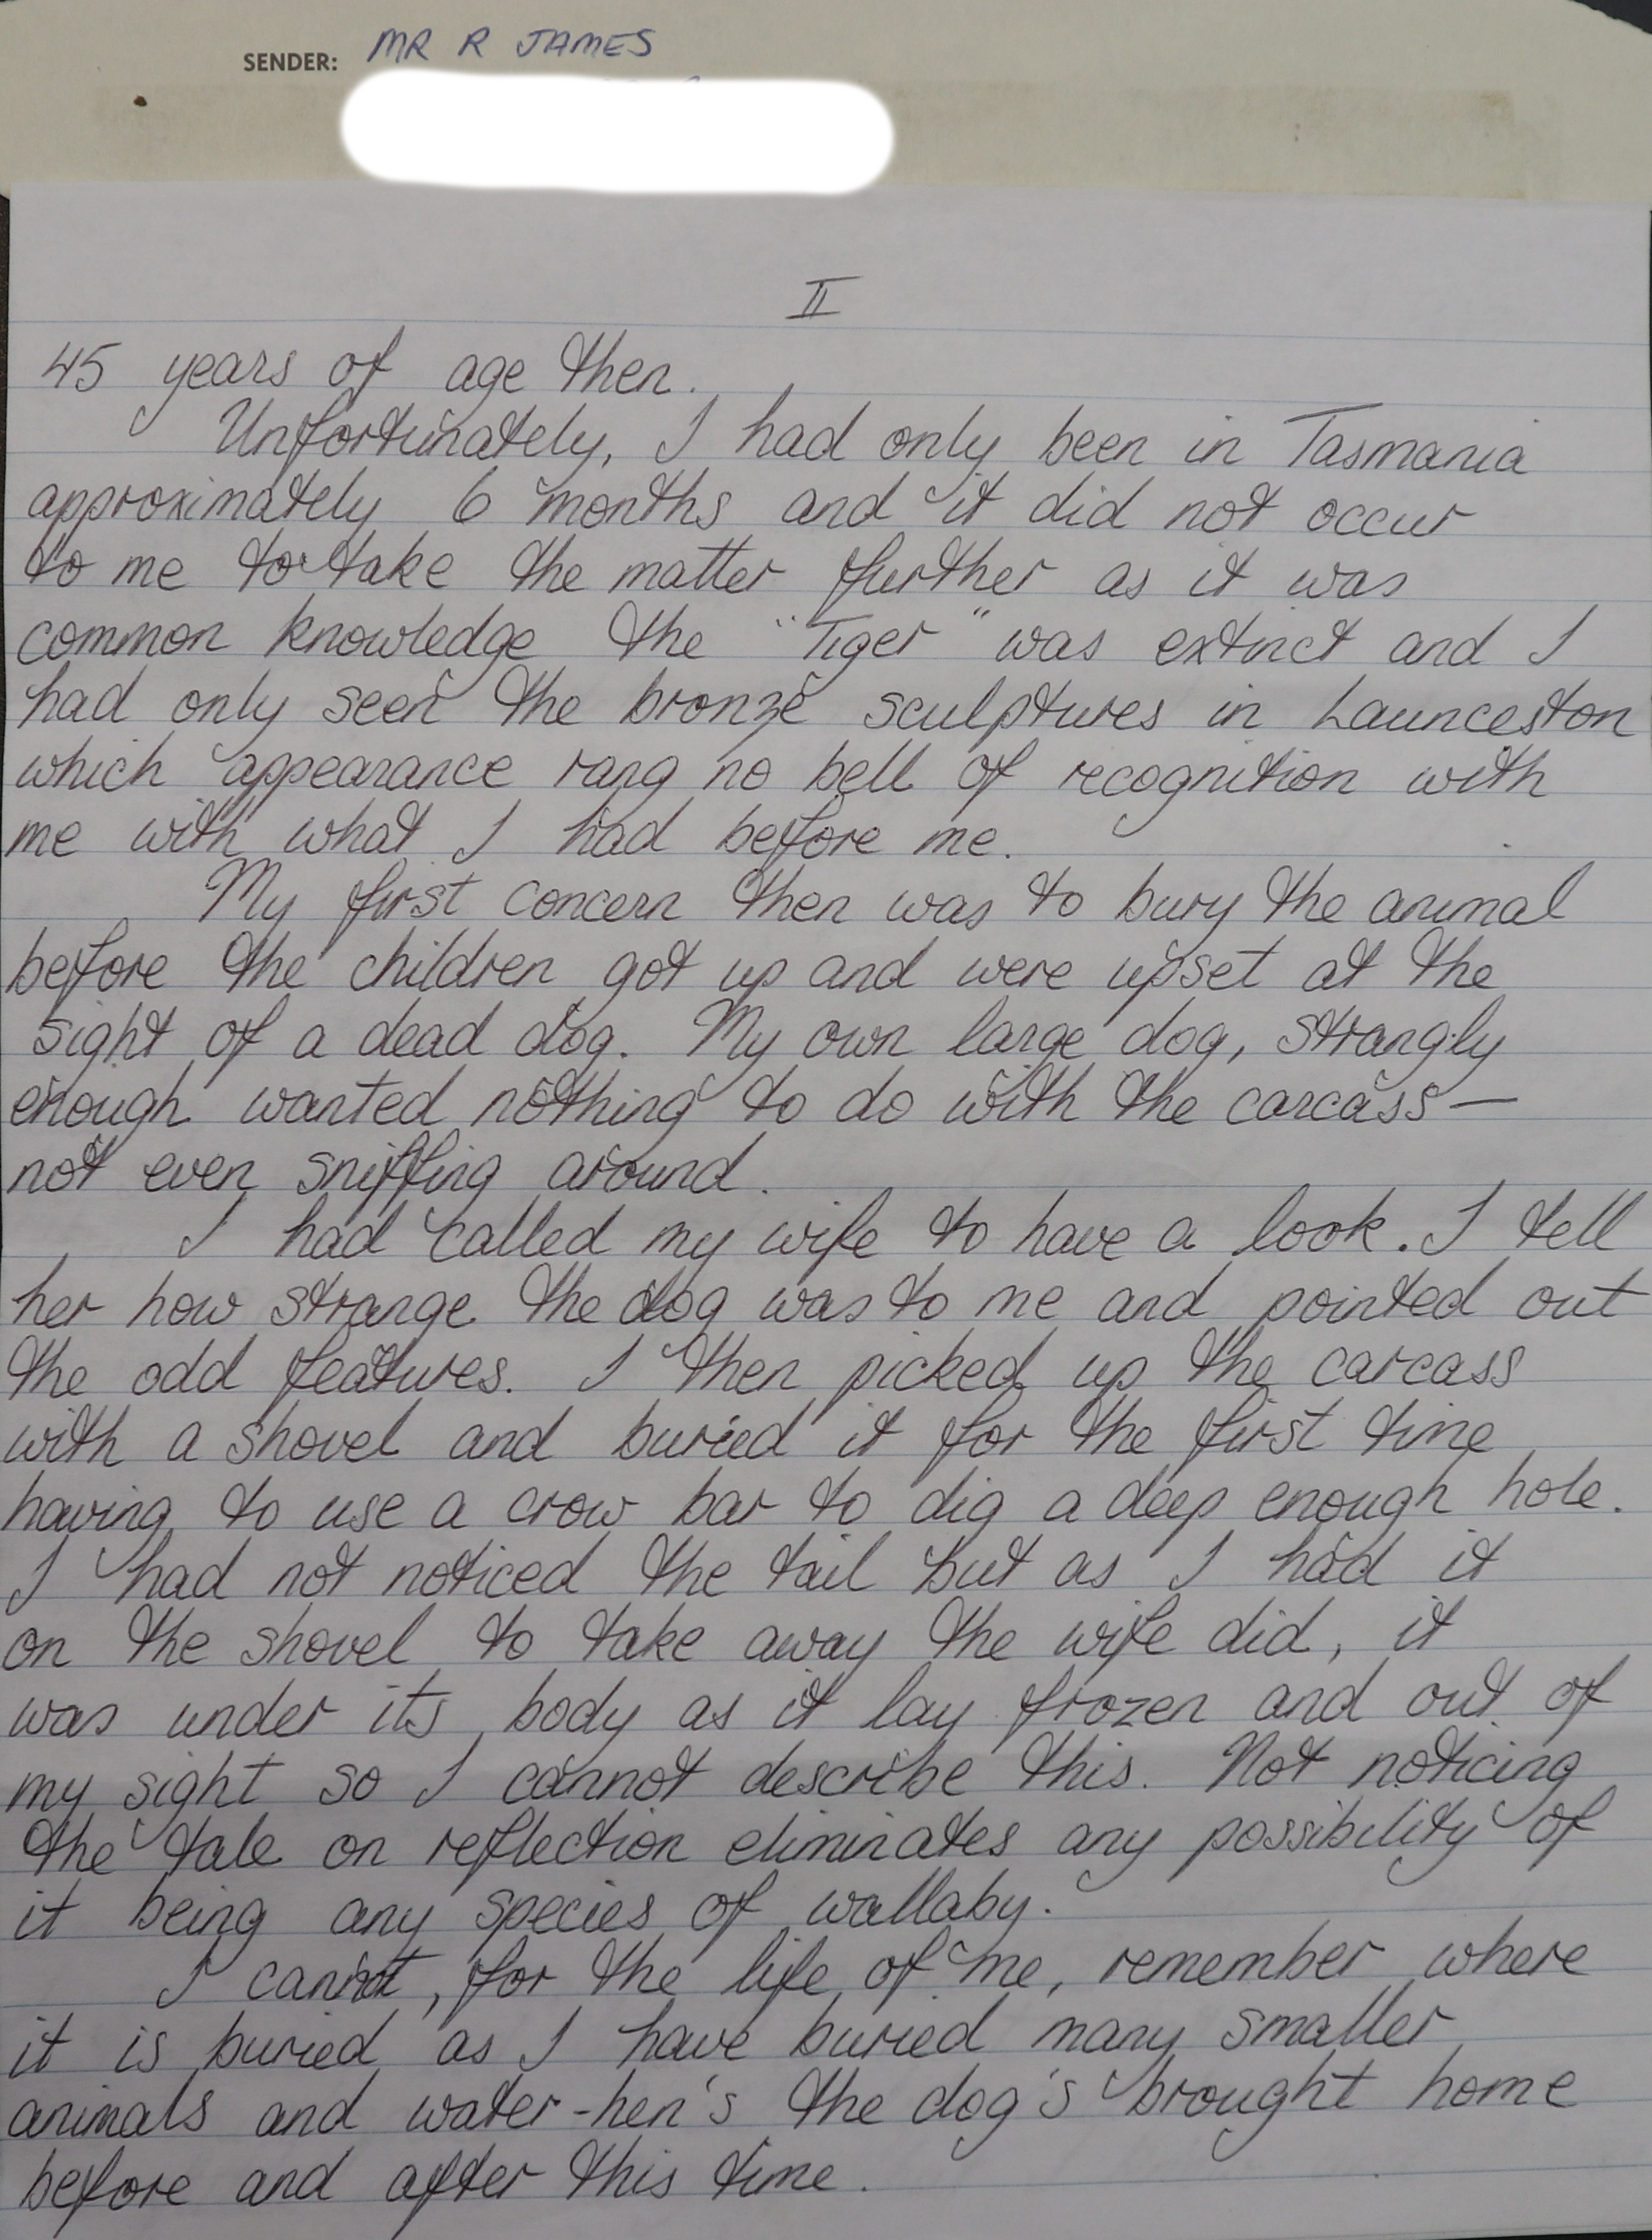 SENDER: MR R JAMES
II
45 years of age then.
Unfortunately, I had only been in Tasmania
approximately 6 months and it did not occur
to me to take the matter further as it was
common knowledge the "Tiger" was extinct and I
had only seen the bronze sculptures in Launceston
which appearance rang no bell of recognition with
me with what I had before me.
My first concern then was to bury the animal
before the children got up and were upset at the
sight of a dead dog. My own large dog, strangly
enough wanted nothing to do with the carcass —
not even sniffing around.
I had called my wife to have a look. I tell
her how strange the dog was to me and pointed out
the odd features. I then picked up the carcass
with a shovel and buried it for the first time
having to use a crow bar to dig a deep enough hole.
I had not noticed the tail but as I had it
on the shovel to take away the wife did, it
was under its body as it lay frozen and out of
my sight so I cannot describe this. Not noticing
the tale on reflection eliminates any possibility of
it being any species of wallaby.
I cannot, for the life of me, remember where
it is buried as I have buried many smaller
animals and water-hen's the dog's brought home
before and after this time.